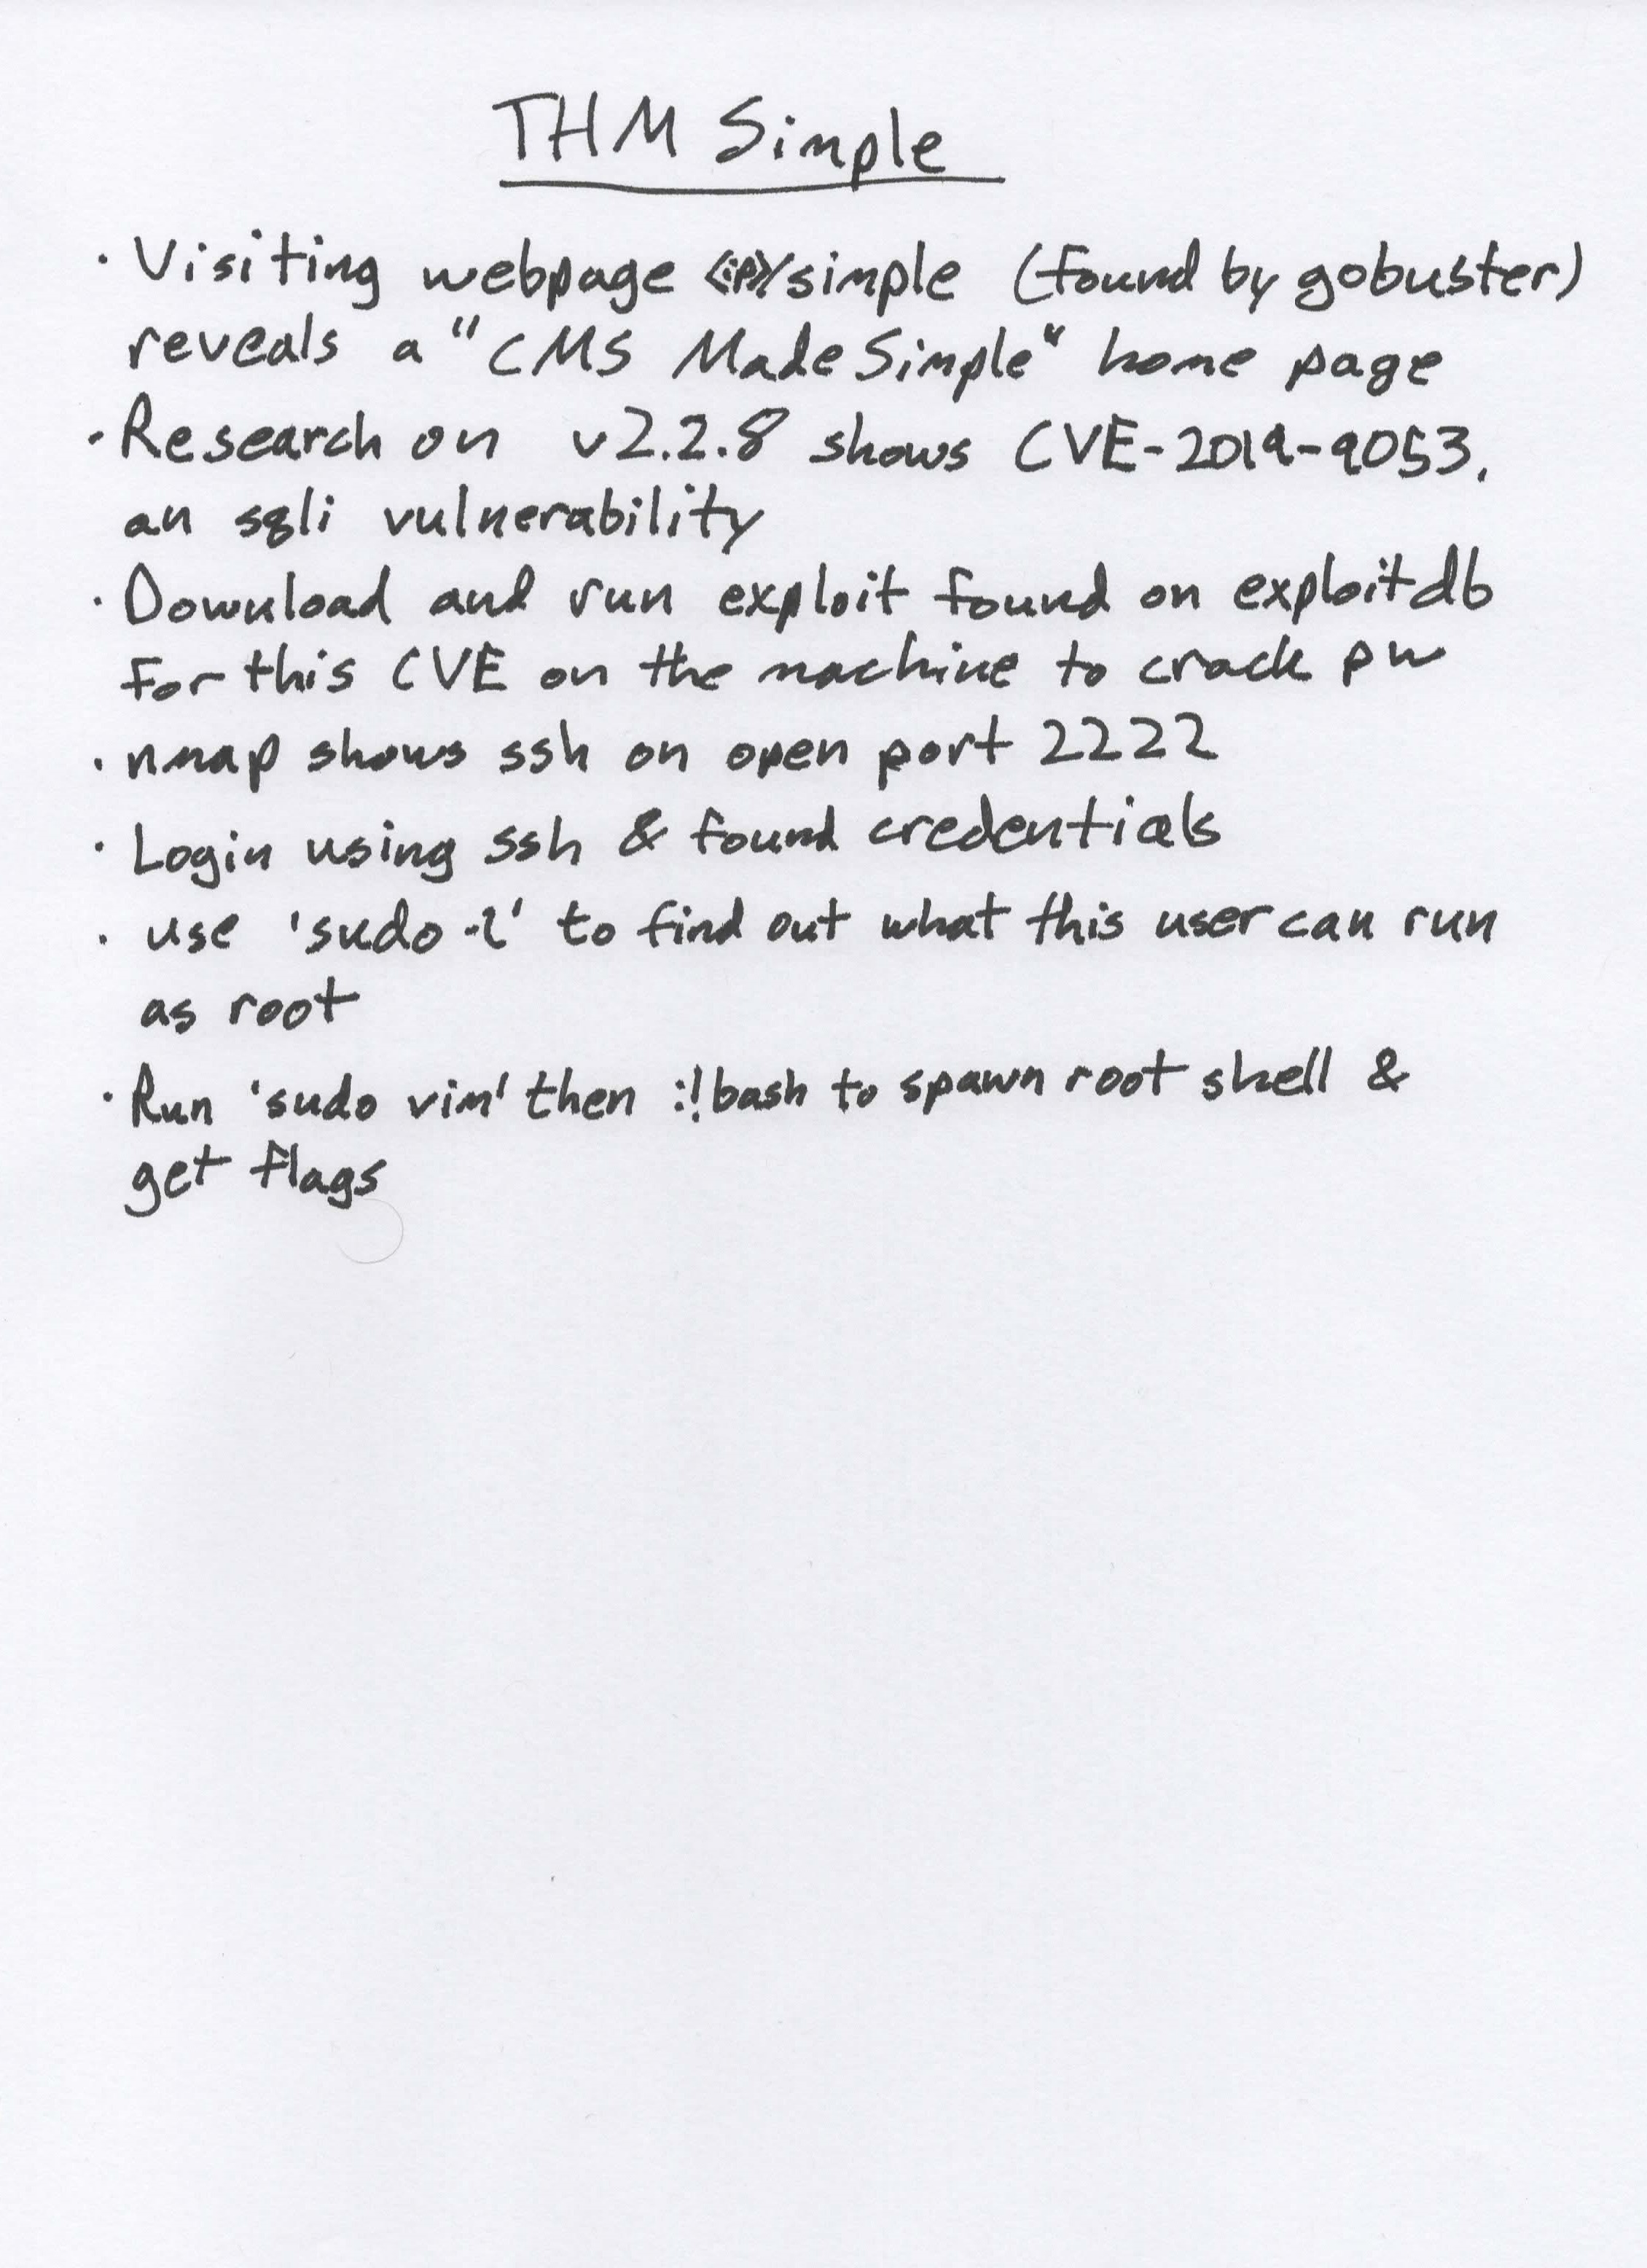 THM Simple
· Visiting webpage <ip>/simple (found by gobuster)
reveals a "CMS Made Simple" home page
· Research on v2.2.8 shows CVE-2019-9053,
an sqli vulnerability
· Download and run exploit found on exploitdb
for this CVE on the machine to crack pw
· nmap shows ssh on open port 2222
· Login using ssh & found credentials
· use 'sudo -l' to find out what this user can run
as root
· Run 'sudo vim' then :!bash to spawn root shell &
get flags